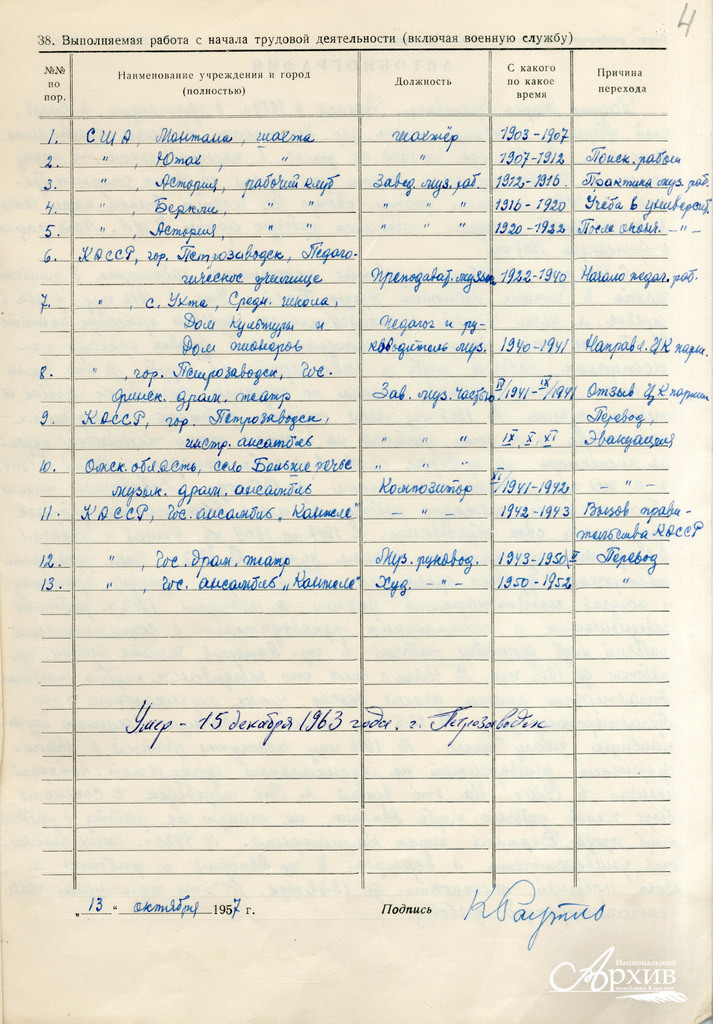 4
38. Выполняемая работа с начала трудовой деятельности (включая военную службу)
№№ по пор. Наименование учреждения и город (полностью) Должность С какого по какое время Причина перехода
1. США, Монтана, шахта шахтёр 1903-1907
2. " Юта, " " 1907-1912 Поиск. работы
3. " , Астория, рабочий клуб Завед. муз. раб. 1912-1916. Практика муз. раб.
4. " , Беркли, " " " " " 1916-1920 Учеба в университ.
5. " , Астория, " " " " " 1920-1922 После оконч. -"-
6. КАССР, гор. Петрозаводск, Педаго-
гическое училище Преподават. музыки 1922-1940 Начало педаг. раб.
7. " , с. Ухта, Средн. школа,
Дом Культуры и Педагог и ру-
Дом пионеров ководитель муз. 1940-1941 Направл. ЦК парт.
8. " , гор. Петрозаводск, Гос.
финск. драм. театр Зав. муз. частью /1941-IX/1941 Отзыв ЦК партии
9. КАССР, гор. Петрозаводск, Перевод,
инстр. ансамбль " " " IX, X, XI Эвакуация
10. Омск. область, село Больше речье " " "
музык. драм. ансамбль Композитор XI/1941-1942 -"-
11. КАССР, Гос. ансамбль „Кантеле" -"- 1942-1943 Вызов прави-
тельства КАССР
12. " , Гос. драм. театр Муз. руковод. 1943-1950 Перевод
13. " , Гос. ансамбль „Кантеле" Худ. -"- 1950-1952 "
Умер - 15 декабря 1963 года. г. Петрозаводск
„13" октября 1957 г. Подпись КРаутио
Национальный
Архив
республики Карелия